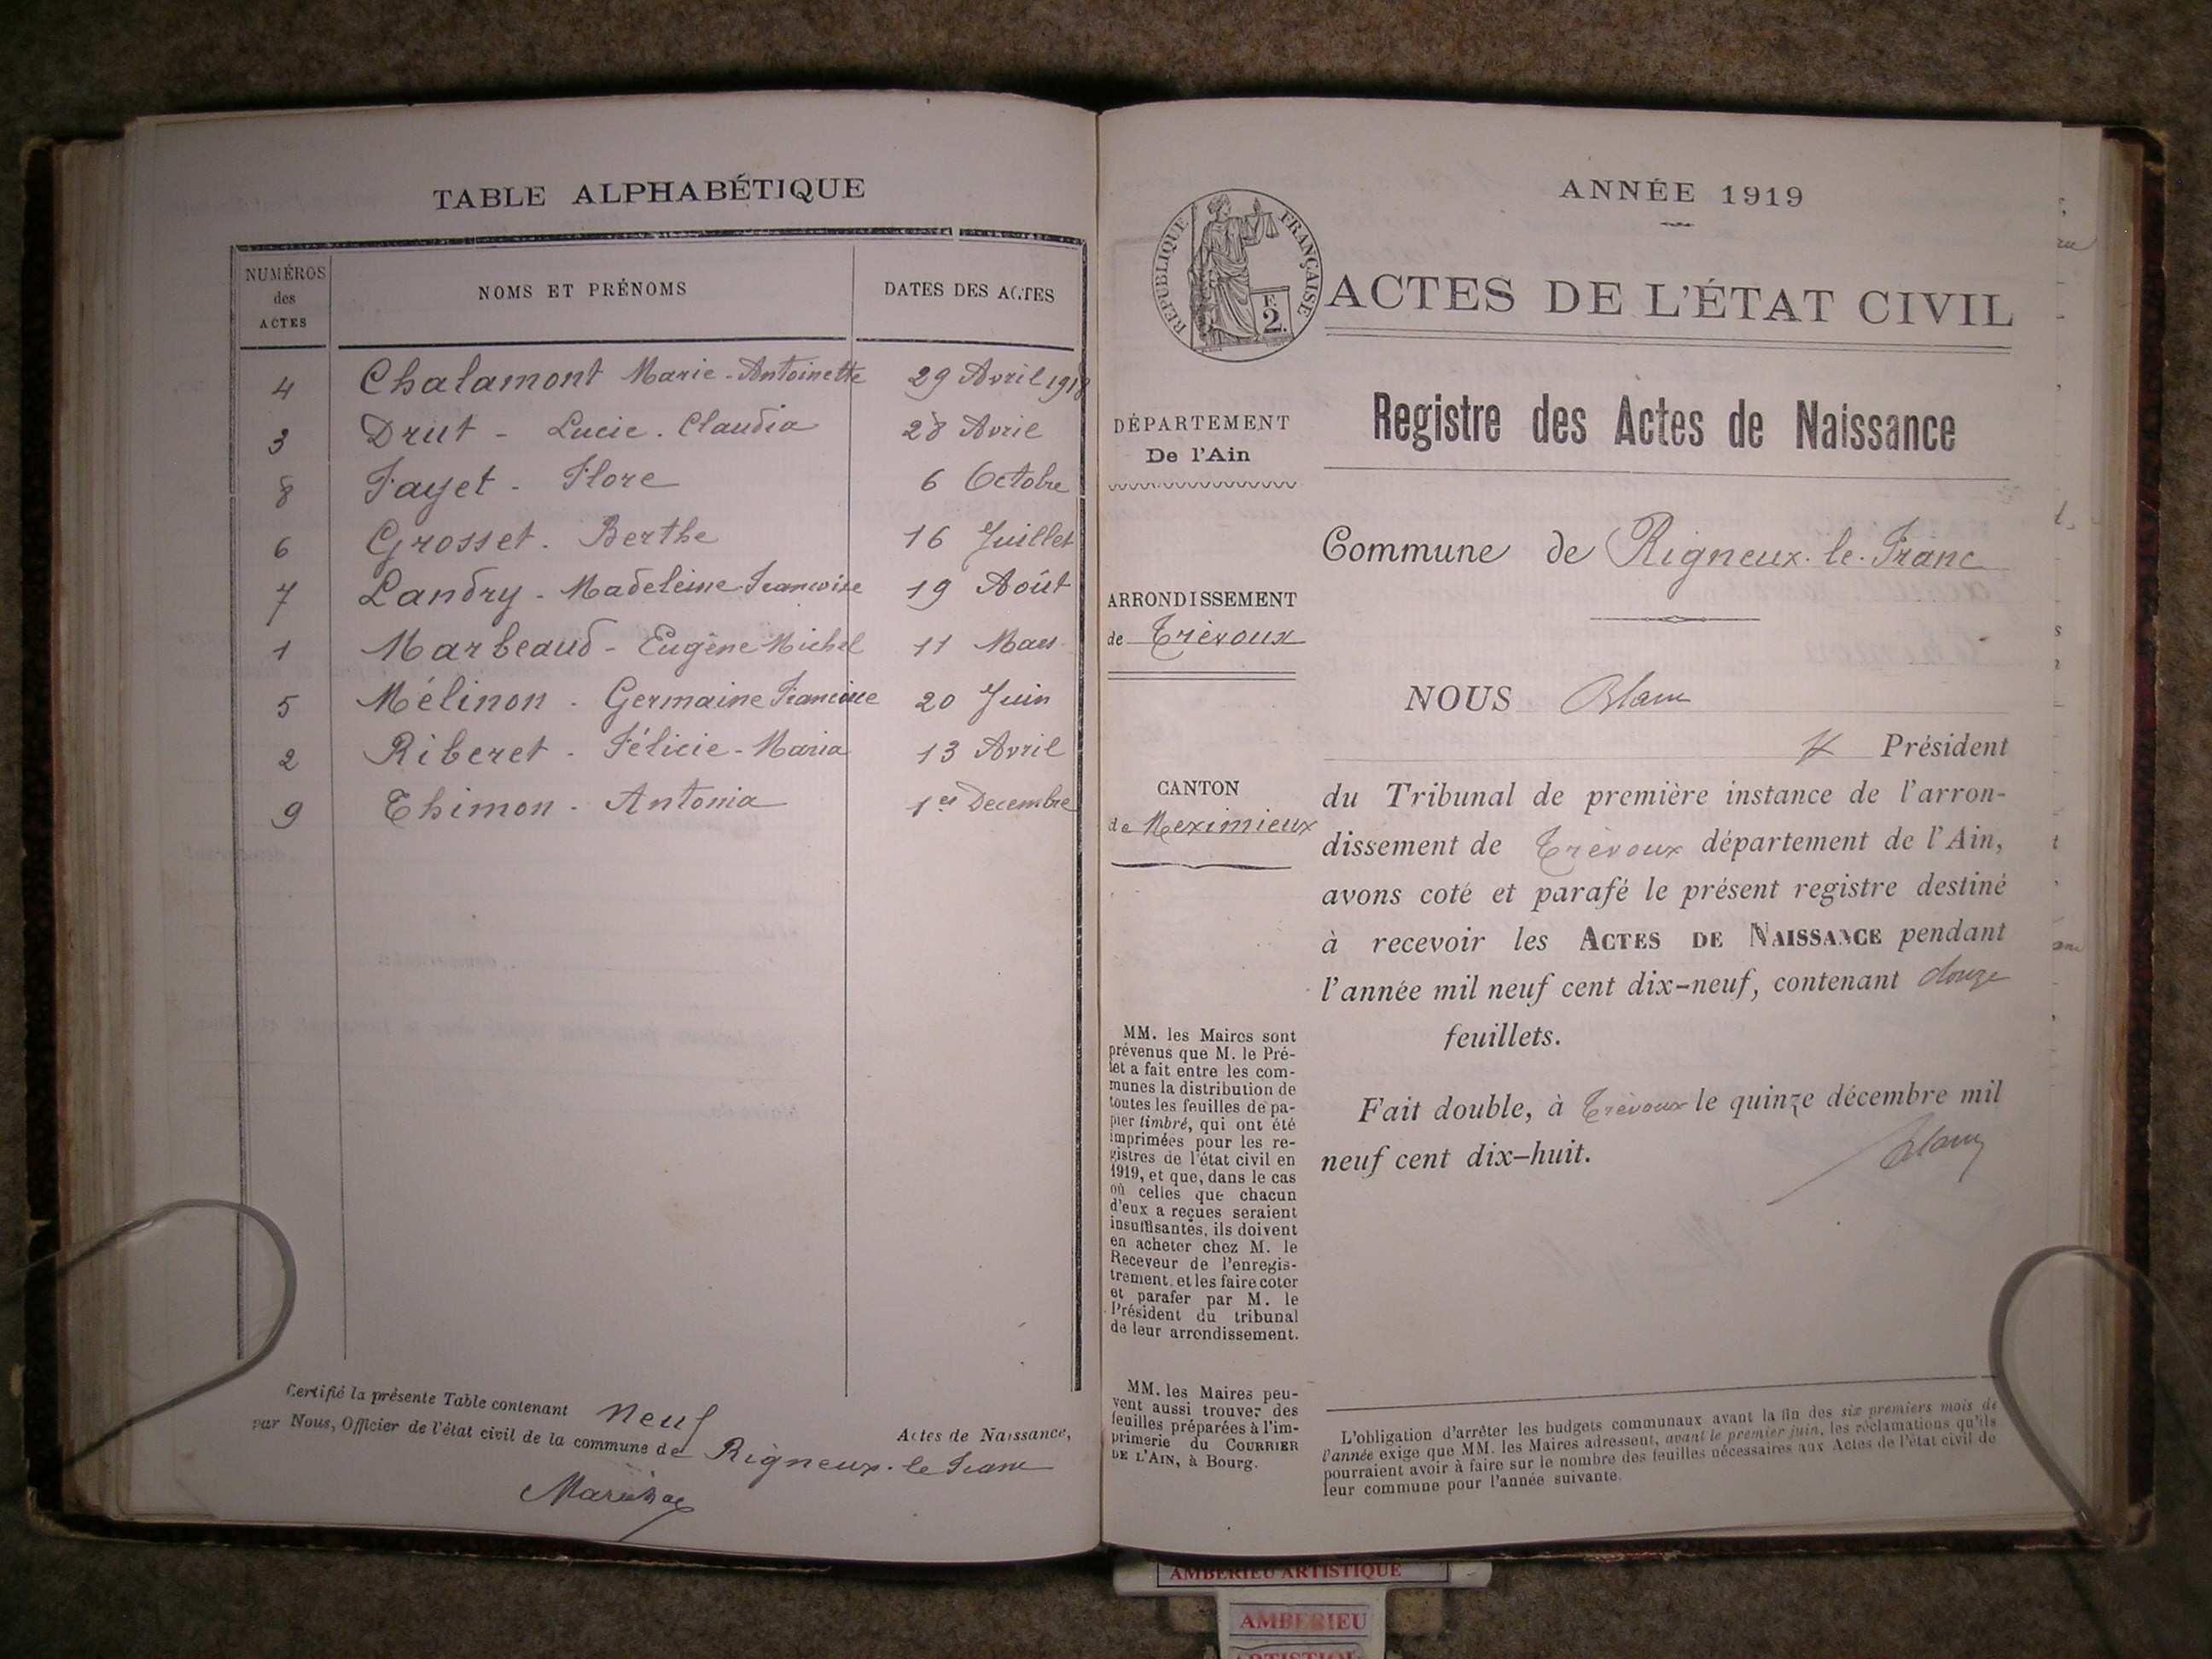 TABLE ALPHABÉTIQUE
NUMÉROS des ACTES NOMS ET PRÉNOMS DATES DES ACTES
4 Chalamont Marie-Antoinette 29 Avril 1918
3 Drut - Lucie. Claudia 28 Avril
8 Fayet - Flore 6 Octobre
6 Grosset. Berthe 16 Juillet
7 Landry - Madeleine Francoise 19 Août
1 Marbeaud - Eugène Michel 11 Mars
5 Mélinon - Germaine Francine 20 Juin
2 Riberet - Félicie-Maria 13 Avril
9 Thimon - Antonia 1er Decembre
Certifié la présente Table contenant neuf Actes de Naissance,
par Nous, Officier de l'état civil de la commune de Rigneux-le Franc
ANNÉE 1919
RÉPUBLIQUE FRANÇAISE
F.
2.
ACTES DE L'ÉTAT CIVIL
Registre des Actes de Naissance
DÉPARTEMENT
De l'Ain
ARRONDISSEMENT
de Trévoux
CANTON
de Meximieux
MM. les Maires sont
prévenus que M. le Pré-
fet a fait entre les com-
munes la distribution de
toutes les feuilles de pa-
pier timbré, qui ont été
imprimées pour les re-
gistres de l'état civil en
1919, et que, dans le cas
où celles que chacun
d'eux a reçues seraient
insuffisantes, ils doivent
en acheter chez M. le
Receveur de l'enregis-
trement, et les faire coter
et parafer par M. le
Président du tribunal
de leur arrondissement.
MM. les Maires peu-
vent aussi trouver des
feuilles préparées à l'im-
primerie du COURRIER
DE L'AIN, à Bourg.
Commune de Rigneux-le-Franc
NOUS Blanc
Président
du Tribunal de première instance de l'arron-
dissement de Trévoux département de l'Ain,
avons coté et parafé le présent registre destiné
à recevoir les ACTES DE NAISSANCE pendant
l'année mil neuf cent dix-neuf, contenant douze
feuillets.
Fait double, à Trévoux le quinze décembre mil
neuf cent dix-huit.
Blanc
L'obligation d'arrêter les budgets communaux avant la fin des six premiers mois de
l'année exige que MM. les Maires adressent, avant le premier juin, les réclamations qu'ils
pourraient avoir à faire sur le nombre des feuilles nécessaires aux Actes de l'état civil de
leur commune pour l'année suivante.
AMBERIEU ARTISTIQUE
AMBERIEU